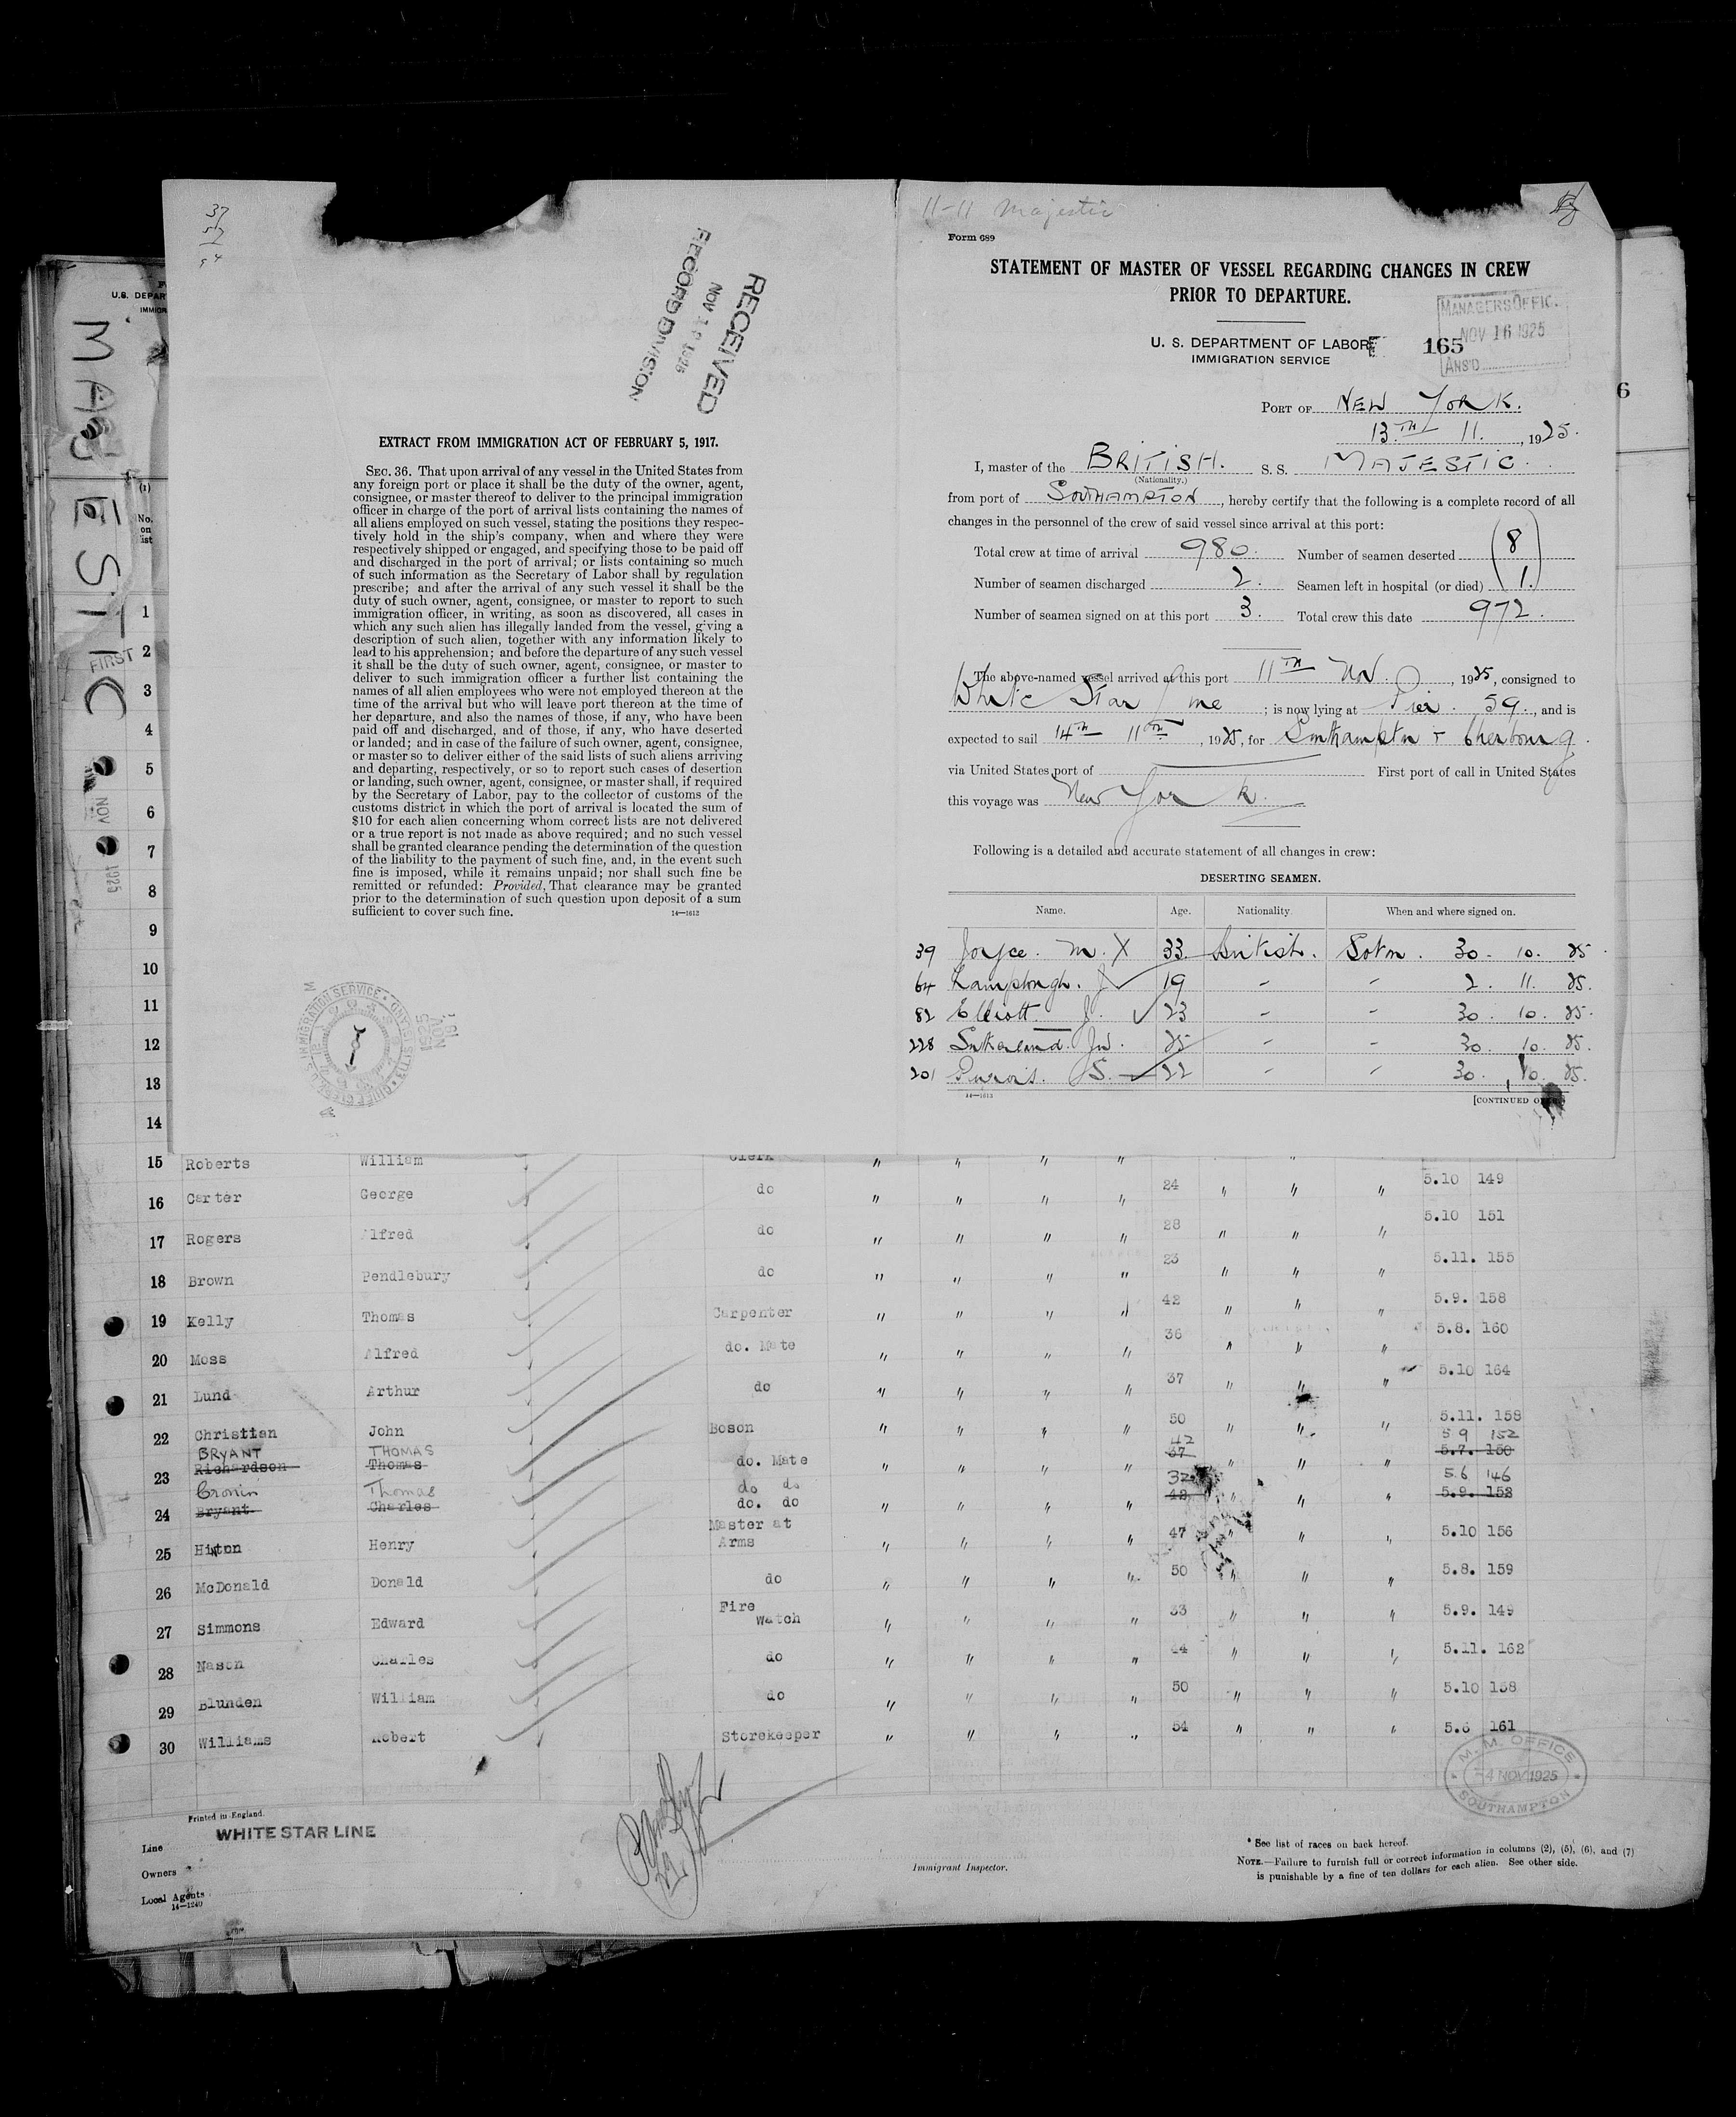 37
57
94
RECEIVED
NOV
RECORD DIVISION
EXTRACT FROM IMMIGRATION ACT OF FEBRUARY 5, 1917.
SEC. 36. That upon arrival of any vessel in the United States from
any foreign port or place it shall be the duty of the owner, agent,
consignee, or master thereof to deliver to the principal immigration
officer in charge of the port of arrival lists containing the names of
all aliens employed on such vessel, stating the positions they respec-
tively hold in the ship's company, when and where they were
respectively shipped or engaged, and specifying those to be paid off
and discharged in the port of arrival; or lists containing so much
of such information as the Secretary of Labor shall by regulation
prescribe; and after the arrival of any such vessel it shall be the
duty of such owner, agent, consignee, or master to report to such
immigration officer, in writing, as soon as discovered, all cases in
which any such alien has illegally landed from the vessel, giving a
description of such alien, together with any information likely to
lead to his apprehension; and before the departure of any such vessel
it shall be the duty of such owner, agent, consignee, or master to
deliver to such immigration officer a further list containing the
names of all alien employees who were not employed thereon at the
time of the arrival but who will leave port thereon at the time of
her departure, and also the names of those, if any, who have been
paid off and discharged, and of those, if any, who have deserted
or landed; and in case of the failure of such owner, agent, consignee,
or master so to deliver either of the said lists of such aliens arriving
and departing, respectively, or so to report such cases of desertion
or landing, such owner, agent, consignee, or master shall, if required
by the Secretary of Labor, pay to the collector of customs of the
customs district in which the port of arrival is located the sum of
$10 for each alien concerning whom correct lists are not delivered
or a true report is not made as above required; and no such vessel
shall be granted clearance pending the determination of the question
of the liability to the payment of such fine, and, in the event such
fine is imposed, while it remains unpaid; nor shall such fine be
remitted or refunded: Provided, That clearance may be granted
prior to the determination of such question upon deposit of a sum
sufficient to cover such fine.
14—1612
11-11 Majestic
Form 689
STATEMENT OF MASTER OF VESSEL REGARDING CHANGES IN CREW
PRIOR TO DEPARTURE.
U. S. DEPARTMENT OF LABOR
IMMIGRATION SERVICE
165
MANAGERS OFFIC.
NOV 16 1925
ANS'D
PORT OF NEW YORK.
13TH 11, 1925.
I, master of the BRITISH. S. S. MAJESTIC.
(Nationality.)
from port of SOUTHAMPTON, hereby certify that the following is a complete record of all
changes in the personnel of the crew of said vessel since arrival at this port:
Total crew at time of arrival 980. Number of seamen deserted (8
Number of seamen discharged 2. Seamen left in hospital (or died) 1.)
Number of seamen signed on at this port 3. Total crew this date 972.
The above-named vessel arrived at this port 11TH Nov., 1925, consigned to
White Star Line; is now lying at Pier. 59., and is
expected to sail 14th 11, 1925, for Southampton + Cherbourg.
via United States port of First port of call in United States
this voyage was New York.
Following is a detailed and accurate statement of all changes in crew:
DESERTING SEAMEN.
Name. Age. Nationality. When and where signed on.
39 Joyce. M. X 33 British. Soton. 30. 10. 25
64 J 19 - - 2. 11. 25.
82 Elliott. J. 23 - - 30. 10. 25.
228 Sutherland. Jw. 25 - - 30. 10. 25.
201 S. 22 - - 30. 10. 25.
14—1613
[CONTINUED
U.S. DEPAR
IMMIGR
MAJESTIC
FIRST
NOV 1925
6
(1)
No. on list
1
2
3
4
5
6
7
8
9
10
11
12
13
14
15 Roberts William Clerk " " " " "
16 Carter George do " " " " 24 " " " 5.10 149
17 Rogers Alfred do " " " " 28 " " " 5.10 151
18 Brown Pendlebury do " " " " 23 " " " 5.11. 155
19 Kelly Thomas Carpenter " " " " 42 " " " 5.9. 158
20 Moss Alfred do. Mate " " " " 36 " " " 5.8. 160
21 Lund Arthur do " " " " 37 " " " 5.10 164
22 Christian John Boson " " " " 50 " " " 5.11. 158
BRYANT THOMAS 42 5 9 152
23 Richardson Thomas do. Mate " " " " 37 " " " 5.7. 150
Cronin Thomas do do 32 5 6 146
24 Bryant Charles do. do " " " " 42 " " " 5.9. 152
25 Hinton Henry Master at Arms " " " " 47 " " " 5.10 156
26 McDonald Donald do " " " " 50 " " " 5.8. 159
27 Simmons Edward Fire Watch " " " " 33 " " " 5.9. 149
28 Nason Charles do " " " " 44 " " " 5.11. 162
29 Blunden William do " " " " 50 " " " 5.10 158
30 Williams Robert Storekeeper " " " " 54 " " " 5.6 161
M. M. OFFICE
4 NOV 1925
SOUTHAMPTON
Printed in England.
Line WHITE STAR LINE
Owners
Local Agents
14—1240
Immigrant Inspector.
* See list of races on back hereof.
NOTE.—Failure to furnish full or correct information in columns (2), (5), (6), and (7)
is punishable by a fine of ten dollars for each alien. See other side.